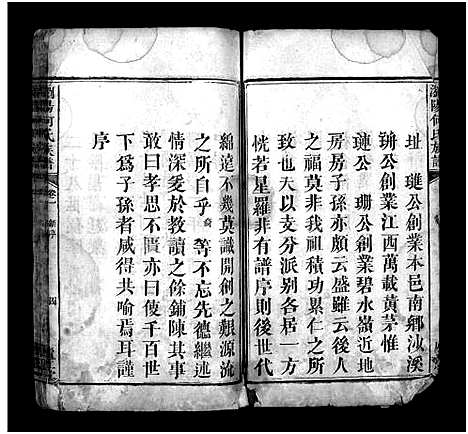 瀏陽何氏族譜
址　璉公創業本邑南鄉沙溪
公創業江西萬載黃茅惟
璉公　珊公創業碧水嶺近地
房房子孫亦頗云盛雖云後人
之福莫非我祖積功累仁之所
致也夫以支分派別各居一方
恍若星羅非有譜序則後世代
綿遠不幾莫識開創之艱源流
之所自乎　等不忘先德繼述
情深爰於教讀之餘鋪陳其事
敢曰孝思不匱亦曰使千百世
下為子孫者咸得共喻焉耳謹
序
瀏陽何氏族譜
卷一　新序
四